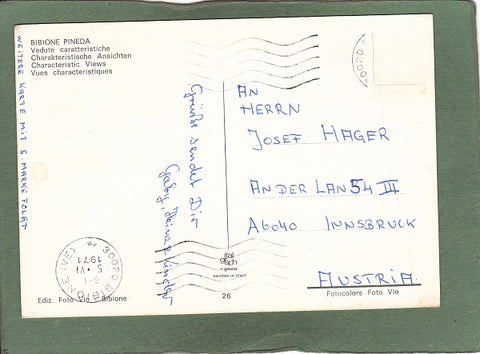 BIBIONE PINEDA
Vedute caratteristiche
Charakteristische Ansichten
Characteristic Views
Vues characteristiques
WEITERE KARTE MIT S. MARKE FOLGT
Grüße sendet Dir
Gaby, Heinz + Kinder
AN
HERRN
JOSEF HAGER
AN DER LAN 54 III
A6040 INNSBRUCK
AUSTRIA
Fotocolors Foto Vio
30020 BIBIONE (VE)
5 · VI
1971
30020
PRINTED IN ITALY
Ediz. Foto Vio Bibione
26